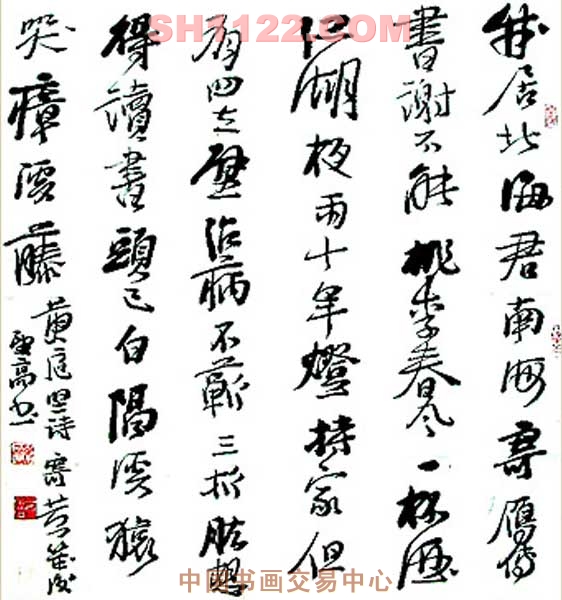 SH1122.COM
我居北海君南海寄雁傳
書謝不能桃李春風一杯酒
江湖夜雨十年燈持家但
有四立壁治病不蘄三折肱想
得讀書頭已白隔溪猿
哭瘴溪藤 黄庭坚詩寄黄几復
高书
中国书画交易中心